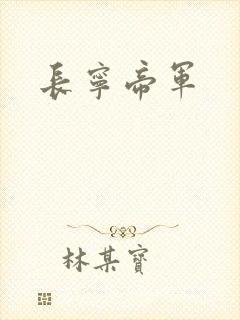 長寧帝軍
林某寶